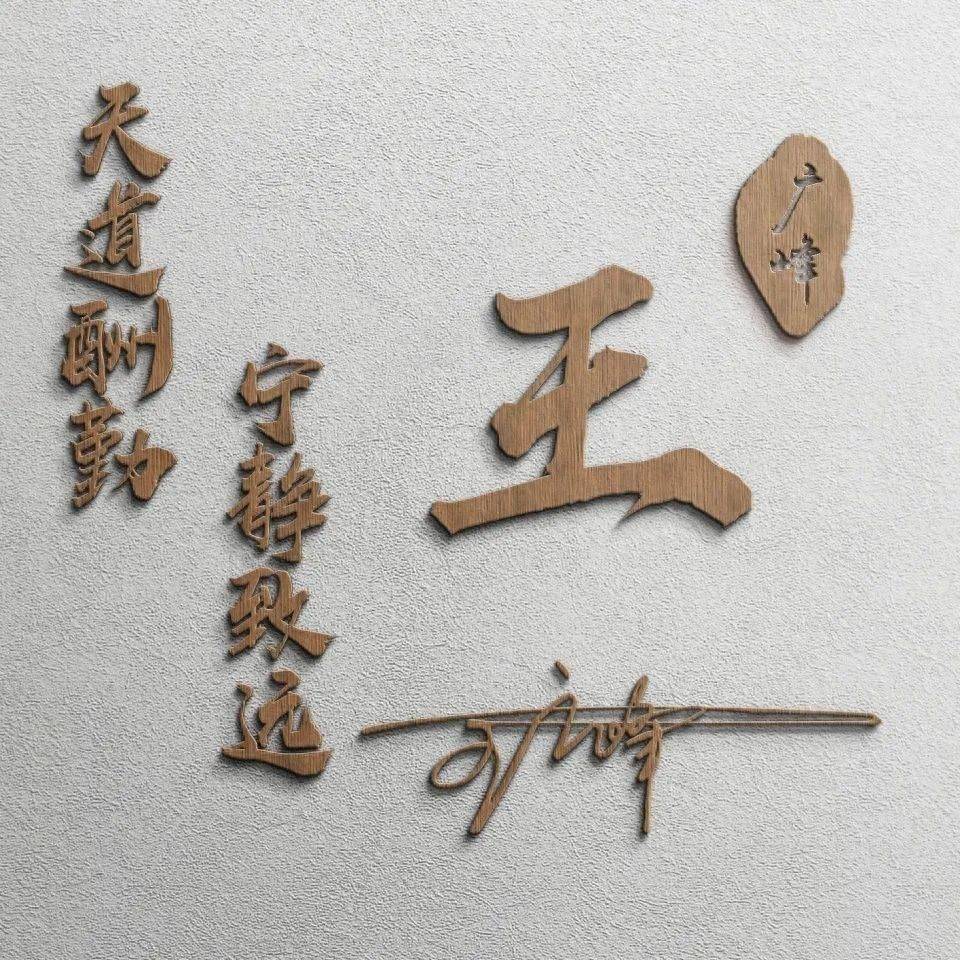 天道酬勤
宁静致远
王
广峰
王广峰